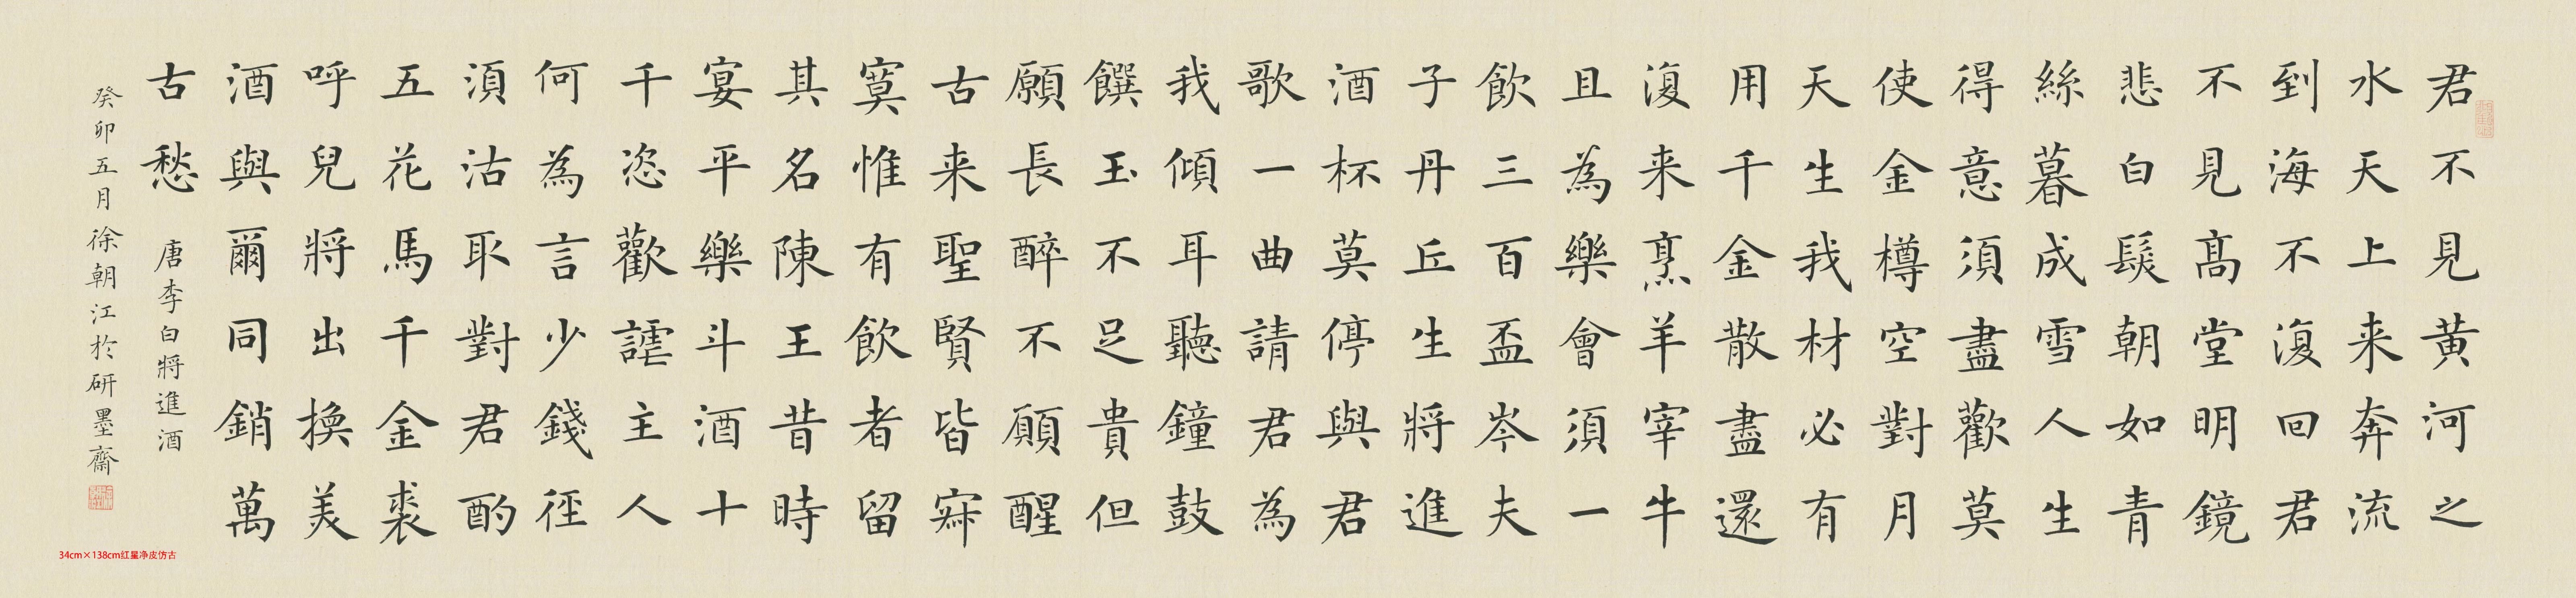 君不見黄河之
水天上来奔流
到海不復回君
不見髙堂明鏡
悲白髮朝如青
絲暮成雪人生
得意須盡歡莫
使金樽空對月
天生我材必有
用千金散盡還
復来烹羊宰牛
且為樂會須一
飲三百盃岑夫
子丹丘生將進
酒杯莫停與君
歌一曲請君為
我傾耳聽鐘鼓
饌玉不足貴但
願長醉不願醒
古来聖賢皆寂
寞惟有飲者留
其名陳王昔時
宴平樂斗酒十
千恣歡謔主人
何為言少錢徑
須沽取對君酌
五花馬千金裘
呼兒將出換美
酒與爾同銷萬
古愁 唐李白將進酒
癸卯五月徐朝江於研墨齋
34cm×138cm红星净皮仿古